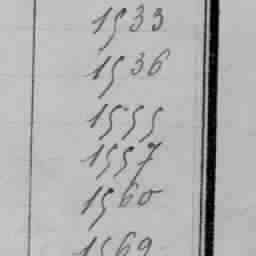 1533
1536
1555
1557
1560
1569